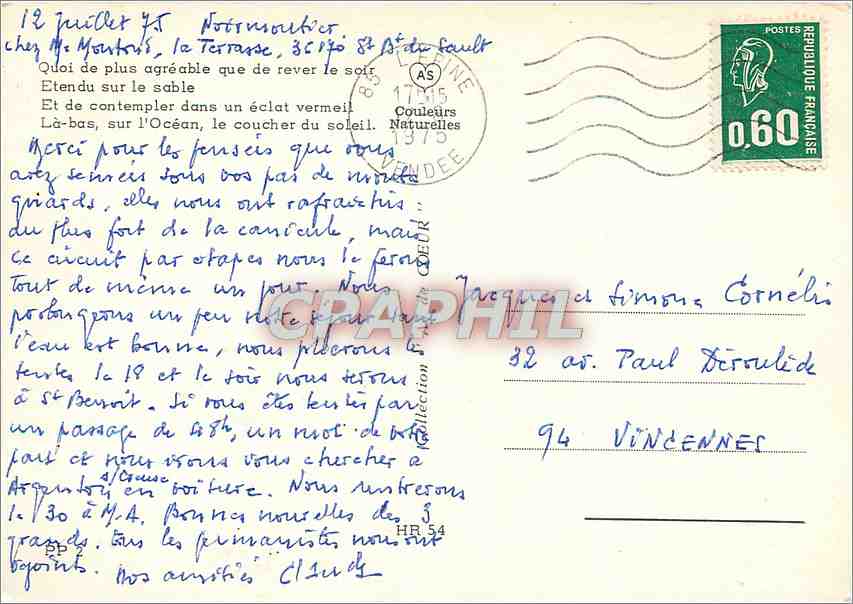 12 Juillet 75 Noirmoutier
chez Me Montoni, la Terrasse, 36170 St Bt du Sault
Quoi de plus agréable que de rever le soir
Etendu sur le sable
Et de contempler dans un éclat vermeil
Là-bas, sur l'Océan, le coucher du soleil.
AS
Couleurs
Naturelles
85 L'EPINE
17 15
1975
VENDEE
POSTES
REPUBLIQUE FRANÇAISE
0,60
Merci pour les pensées que vous
avez semées sous vos pas de
elles nous ont rafraichis
au plus fort de la canicule, mais
ce circuit par etapes nous le ferons
tout de même un jour. Nous
prolongeons un peu notre séjour tant
l'eau est bonne, nous plierons la
tente le 18 et le soir nous serons
à St Benoit. Si vous êtes tentés par
un passage de 48h, un mot de votre
part et nous irons vous chercher à
Argenton s/Creuse en voiture. Nous rentrerons
le 30 à M.A. Bonnes nouvelles des 3
grands. tous les germanistes nous ont
rejoints. nos amitiés Claude
Collection COEUR
HR 54
PP 2
CPAPHIL
Jacques et Simone Cornélis
32 av. Paul Déroulède
94 VINCENNES